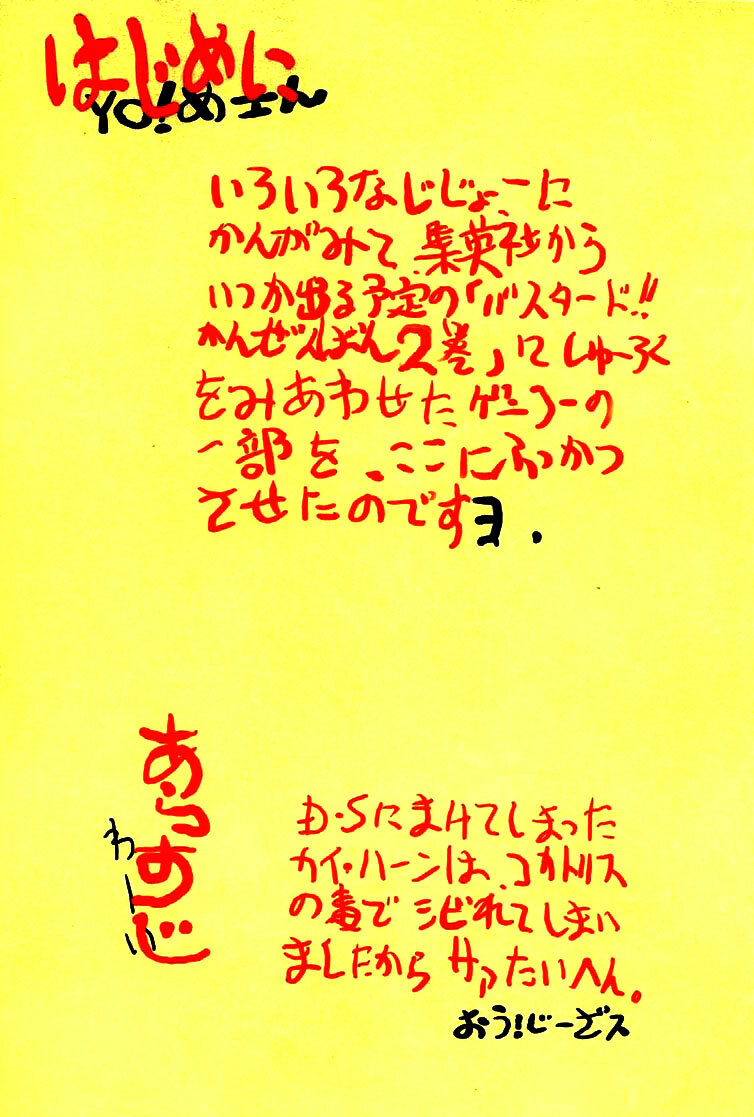 はじめに
YO!めェん
いろいろなじじょーに
かんがみて 集英社から
いつか出る予定の「バスタード!!
かんぜんばん2巻」にしゅーろく
をみあわせたゲンコーの
一部を、ここにふっかつ
させたのですヨ.
あらすじ
わーい
D・Sにまけてしまった
カイ・ハーンは、コカトリス
の毒でシビれてしまい
ましたから サアたいへん。
おう!じーざス